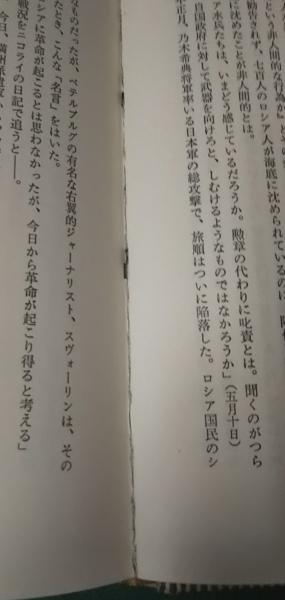 という非人間的な行為か」と
勧告されず、七百人のロシア人が海底に沈められているのに
に沈めたことが非人間的とは。
ア水兵たちは、いまどう感じているだろうか。勲章の代わりに叱責とは。聞くのがつら
自国政府に対して武器を向けろと、しむけるようなものではなかろうか」(五月十日)
年正月、乃木希典将軍率いる日本軍の総攻撃で、旅順はついに陥落した。ロシア国民のシ
なものだったが、ペテルブルグの有名な右翼的ジャーナリスト、スヴォーリンは、その
たとき、こんな「名言」をはいた。
シアに革命が起こるとは思わなかったが、今日から革命が起こり得ると考える」
戦況をニコライの日記で追うと——。
今日、